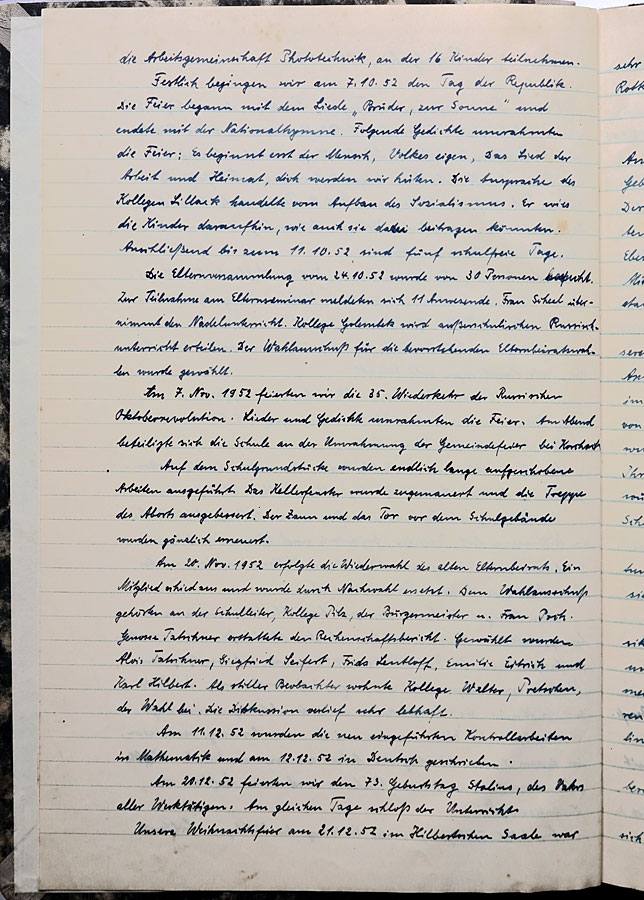 die Arbeitsgemeinschaft Phototechnik, an der 16 Kinder teilnehmen.
Festlich begingen wir am 7.10.52 den Tag der Republik.
Die Feier begann mit dem Liede „Brüder, zur Sonne" und
endete mit der Nationalhymne. Folgende Gedichte umrahmten
die Feier: Es beginnt erst der Mensch, Volkes eigen, Das Lied der
Arbeit und Heimat, dich werden wir hüten. Die Ansprache des
Kollegen Lillack handelte vom Aufbau des Sozialismus. Er wies
die Kinder daraufhin, wie auch sie dabei beitragen könnten.
Anschließend bis zum 11.10.52 sind fünf schulfreie Tage.
Die Elternversammlung vom 24.10.52 wurde von 30 Personen besucht.
Zur Teilnahme am Elternseminar meldeten sich 11 Anwesende. Frau Scheel über-
nimmt den Nadelunterricht. Kollege Golembek wird außerschulischen Russisch-
unterricht erteilen. Der Wahlausschuß für die bevorstehenden Elternbeiratswah-
len wurde gewählt.
Am 7. Nov. 1952 feierten wir die 35. Wiederkehr der Russischen
Oktoberrevolution. Lieder und Gedichte umrahmten die Feier. Am Abend
beteiligte sich die Schule an der Umrahmung der Gemeindefeier bei
Auf dem Schulgrundstücke wurden endlich lange aufgeschobene
Arbeiten ausgeführt. Das Kellerfenster wurde zugemauert und die Treppe
des Aborts ausgebessert. Der Zaun und das Tor vor dem Schulgebäude
wurden gänzlich erneuert.
Am 20. Nov. 1952 erfolgte die Wiederwahl des alten Elternbeirats. Ein
Mitglied schied aus und wurde durch Nachwahl ersetzt. Dem Wahlausschuß
gehörten an der Schulleiter, Kollege Pilz, der Bürgermeister u. Frau
Genosse Tatschner erstattete den Rechenschaftsbericht. Gewählt wurden
Alois Tatschner, Siegfried Seifert, Frida Leutloff, Emilie und
Karl Hilbert. Als stiller Beobachter wohnte Kollege Walter, Pretschen,
der Wahl bei. Die Diskussion verlief sehr lebhaft.
Am 11.12.52 wurden die neu eingeführten Kontrollarbeiten
in Mathematik und am 12.12.52 in Deutsch geschrieben.
Am 20.12.52 feierten wir den 73. Geburtstag Stalins, des Vaters
aller Werktätigen. Am gleichen Tage schloß der Unterricht.
Unsere Weihnachtsfeier am 21.12.52 im Hilbertschen Saale war